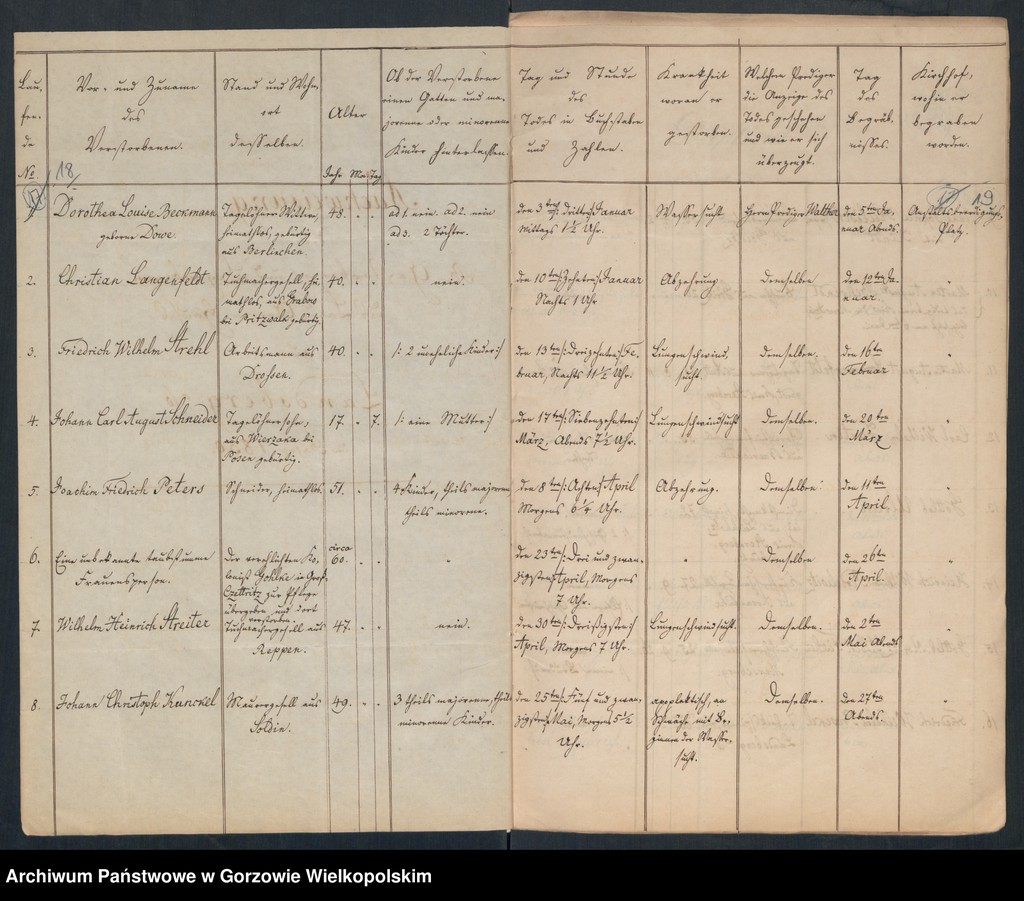 Lau-
fen-
de
No.
Vor- und Zuname
des
Verstorbenen.
Stand und Wohn-
ort
desselben.
Alter
Jahr Mo. Tag
Ob der Verstorbene
einen Gatten und ma-
jorenne oder minorenne
Kinder hinterlassen.
Tag und Stunde
des
Todes in Buchstaben
und Zahlen.
Krankheit
woran er
gestorben.
Welchem Prediger
die Anzeige des
Todes geschehen
und wie er sich
überzeugt.
Tag
des
Begräb-
nisses.
Kirchhof,
wohin er
begraben
worden.
18
19
Dorothea Louise Beckmann
geborne Döwe.
Tagelöhner Wittwe,
heimathlos, gebürtig
aus Berlinchen
48.
ad 1. nein. ad 2. nein
ad 3. 2 Töchter.
den 3ten /: dritten :/ Januar
Mittags 1½ Uhr.
Wassersucht
Herrn Prediger Walther
den 5ten Ja-
nuar Abends.
Anstaltsbeerdigungs-
Platz.
2.
Christian Langenfeldt
Tuchmachergesell, hei-
mathlos, aus Grabow
bei Pritzwalk gebürtig.
40.
nein.
den 10ten /: Zehnten :/ Januar
Nachts 1 Uhr
Abzehrung.
Demselben
den 12ten Ja-
nuar.
"
3.
Friedrich Wilhelm Strehl
Arbeitsmann aus
Drossen.
40.
/: 2 uneheliche Kinder :/
den 13ten /: Dreizehnten :/ Fe-
bruar, Nachts 11½ Uhr.
Lungenschwind-
sucht.
Demselben.
den 16ten
Februar
"
4.
Johann Carl August Schneider
Tagelöhnersohn,
aus Wierzaka bei
Posen gebürtig.
17. . 7.
/: eine Mutter :/
den 17ten /: Siebenzehnten :/
März, Abends 7½ Uhr.
Lungenschwindsucht
Demselben.
den 20ten
März
"
5.
Joachim Friedrich Peters
Schneider, heimathlos.
51.
4 Kinder, theils majorenne
theils minorenne.
den 8ten /: Achten :/ April
Morgens 6¼ Uhr.
Abzehrung.
Demselben.
den 11ten
April.
"
6.
Eine unbekannte taubstumme
Frauensperson.
Der verehlichten Ko-
lonist Gohlke in Groß
Czettritz zur Pflege
übergeben und dort
verstorben.
circa
60.
"
den 23ten /: Drei und zwan-
zigsten :/ April, Morgens
7 Uhr.
"
Demselben
den 26ten
April.
"
7.
Wilhelm Heinrich Streiter
Tuchmachergesell aus
Reppen.
47.
nein.
den 30ten /: Dreißigsten :/
April, Morgens 7 Uhr.
Lungenschwindsucht.
Demselben.
den 2ten
Mai Abends
"
8.
Johann Christoph Kunickel
Maurergesell aus
Soldin.
49.
3 theils majorenne, theils
minorenne Kinder.
den 25ten /: Fünf und zwan-
zigsten :/ Mai, Morgens 5½
Uhr.
apoplektisch, an
Schwäche mit Be-
ginnen der Wasser-
sucht.
Demselben.
den 27ten
Abends.
"
Archiwum Państwowe w Gorzowie Wielkopolskim